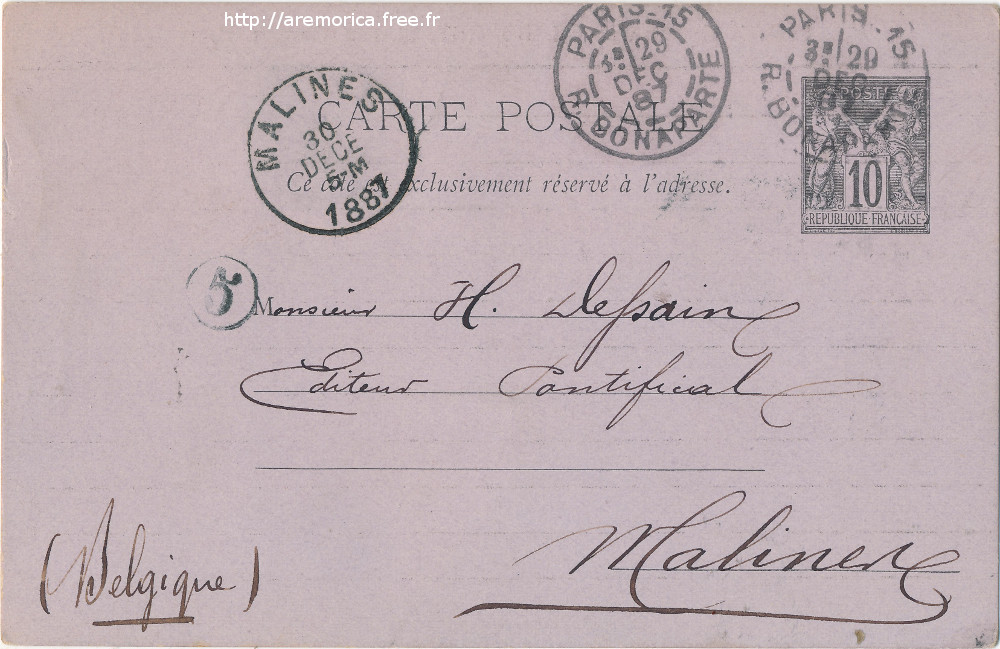 http://aremorica.free.fr
PARIS.15
3E 29
DEC
87
R. BONAPARTE
PARIS.15
3E 29
DEC
R. BONAPARTE
MALINES
30
DECE
5-M
1887
CARTE POSTALE
Ce côté est exclusivement réservé à l'adresse.
POSTE
10
REPUBLIQUE FRANÇAISE
5
Monsieur H. Dessain
Editeur Pontifical
Malines
(Belgique)